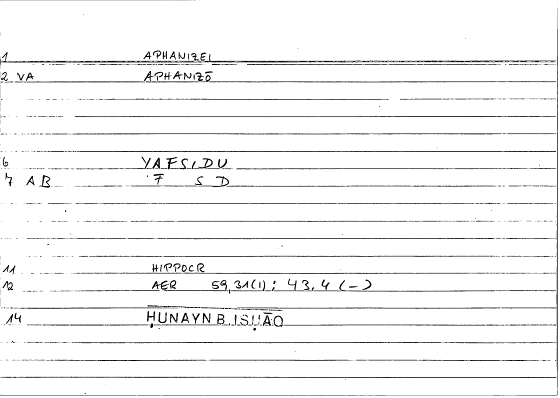 1 APHANIZEI
2 VA APHANIZŌ
6 YAFSIDU
7 AB F S D
11 HIPPOCR
12 AER 59,31(1); 43,4 (–)
14 ḤUNAYN B. ISḤĀQ